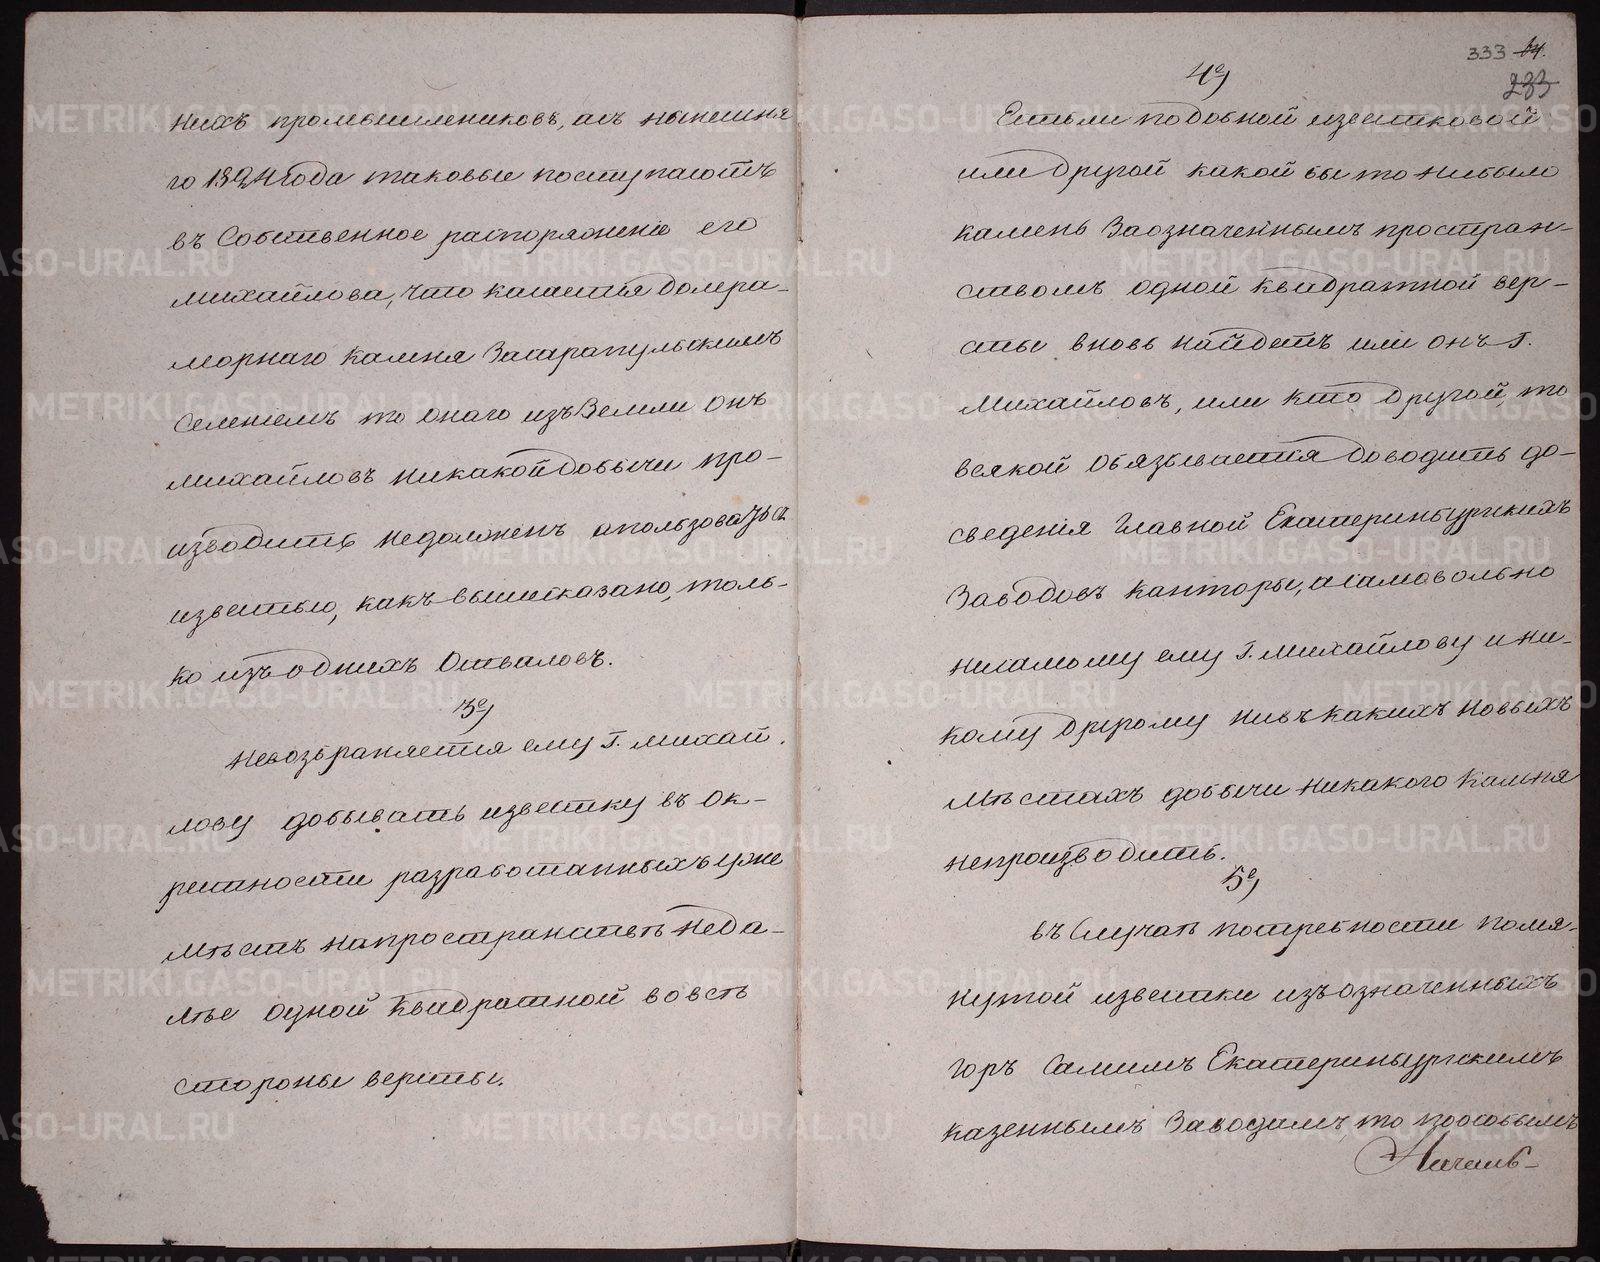 нихъ промышлениковъ, асъ нынешня
го 1824 года таковые поступаютъ
въ Собственное распоряжение его
Михайлова, что касается до мра-
морнаго камня Засарапульскимъ
Селенiемъ то онаго изъ Земли онъ
Михайловъ никакой добычи про-
изводить недолженъ апользоваться
известью, какъ вышесказано, толь-
ко изъ однихъ Отваловъ.
3е)
Невозбраняется ему Г. Михай.
лову добывать известку въ Ок-
ресности разработанныхъ уже
мѣстъ напространствѣ неда-
лѣе одной квадратной вовсѣ
стороны версты.
333 64.
233
4е)
Естьли подобной известковой
или другой какой бы то нибыло
камень Заозначеннымъ простран-
ствомъ одной квадратной вер-
сты вновь найдетъ или онъ Г.
Михайловъ, или кто другой, то
всякой обязывается доводить до-
сведенiя Главной Екатеринбургскихъ
Заводовъ Канторы, асамовольно
нисамому ему Г. Михайлову и ни-
кому другому нивъ какихъ новыхъ
мѣстахъ добычи никакого камня
непроизводить.
5е)
въ Случаѣ потребности помя-
нутой известки изъ означенныхъ
горъ Самимъ Екатеринбургскимъ
казеннымъ Заводамъ, то поособымъ
Началь-
METRIKI.GASO-URAL.RU